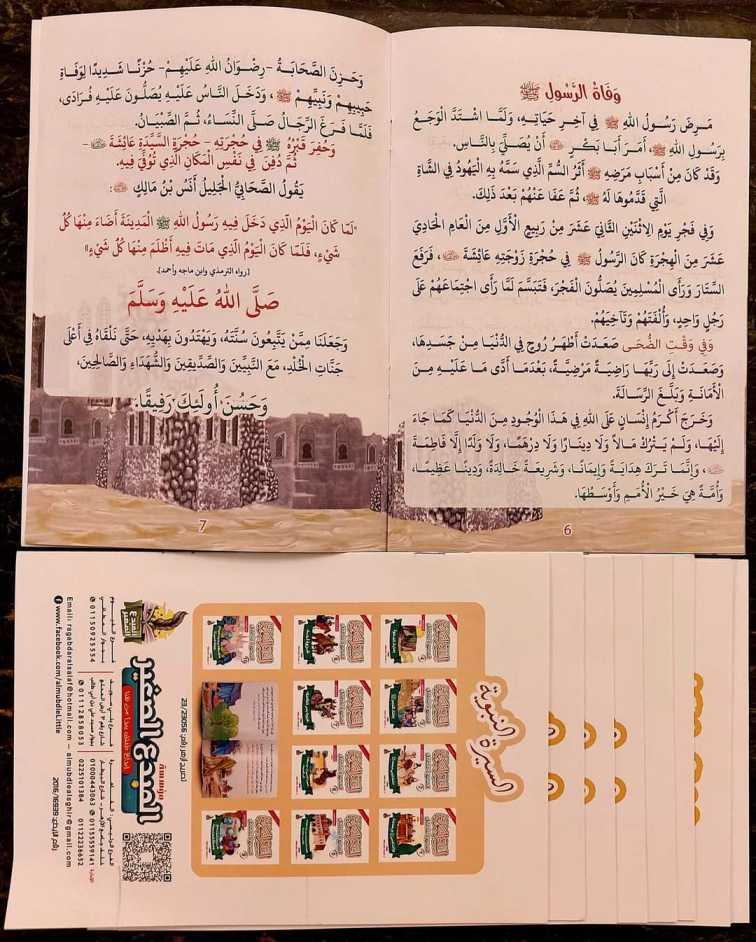 وَفَاةُ الرَّسُولِ ﷺ
مَرِضَ رَسُولُ اللهِ ﷺ فِي آخِرِ حَيَاتِهِ، وَلَمَّا اشْتَدَّ الْوَجَعُ
بِرَسُولِ اللهِ ﷺ، أَمَرَ أَبَا بَكْرٍ أَنْ يُصَلِّيَ بِالنَّاسِ.
وَقَدْ كَانَ مِنْ أَسْبَابِ مَرَضِهِ ﷺ أَثَرُ السُّمِّ الَّذِي سَمَّهُ بِهِ الْيَهُودُ فِي الشَّاةِ
الَّتِي قَدَّمُوهَا لَهُ ﷺ، ثُمَّ عَفَا عَنْهُمْ بَعْدَ ذَلِكَ.
وَفِي فَجْرِ يَوْمِ الِاثْنَيْنِ الثَّانِيَ عَشَرَ مِنْ رَبِيعٍ الْأَوَّلِ مِنَ الْعَامِ الْحَادِيَ
عَشَرَ مِنَ الْهِجْرَةِ كَانَ الرَّسُولُ ﷺ فِي حُجْرَةِ زَوْجَتِهِ عَائِشَةَ ، فَرَفَعَ
السِّتَارَ وَرَأَى الْمُسْلِمِينَ يُصَلُّونَ الْفَجْرَ، فَتَبَسَّمَ لَمَّا رَأَى اجْتِمَاعَهُمْ عَلَى
رَجُلٍ وَاحِدٍ، وَأُلْفَتَهُمْ وَتَآخِيَهُمْ.
وَفِي وَقْتِ الضُّحَى صَعَدَتْ أَطْهَرُ رُوحٍ فِي الدُّنْيَا مِنْ جَسَدِهَا،
وَصَعَدَتْ إِلَى رَبِّهَا رَاضِيَةً مَرْضِيَّةً، بَعْدَمَا أَدَّى مَا عَلَيْهِ مِنَ
الْأَمَانَةِ وَبَلَّغَ الرِّسَالَةَ.
وَخَرَجَ أَكْرَمُ إِنْسَانٍ عَلَى اللهِ فِي هَذَا الْوُجُودِ مِنَ الدُّنْيَا كَمَا جَاءَ
إِلَيْهَا، وَلَمْ يَتْرُكْ مَالًا وَلَا دِينَارًا وَلَا دِرْهَمًا، وَلَا وَلَدًا إِلَّا فَاطِمَةَ
، وَإِنَّمَا تَرَكَ هِدَايَةً وَإِيمَانًا، وَشَرِيعَةً خَالِدَةً، وَدِينًا عَظِيمًا،
وَأُمَّةً هِيَ خَيْرُ الْأُمَمِ وَأَوْسَطُهَا.
6
وَحَزِنَ الصَّحَابَةُ -رِضْوَانُ اللهِ عَلَيْهِمْ- حُزْنًا شَدِيدًا لِوَفَاةِ
حَبِيبِهِمْ وَنَبِيِّهِمْ ﷺ، وَدَخَلَ النَّاسُ عَلَيْهِ يُصَلُّونَ عَلَيْهِ فُرَادَى،
فَلَمَّا فَرَغَ الرِّجَالُ صَلَّى النِّسَاءُ، ثُمَّ الصِّبْيَانُ.
وَحُفِرَ قَبْرُهُ ﷺ فِي حُجْرَتِهِ - حُجْرَةِ السَّيِّدَةِ عَائِشَةَ -
ثُمَّ دُفِنَ فِي نَفْسِ الْمَكَانِ الَّذِي تُوُفِّيَ فِيهِ.
يَقُولُ الصَّحَابِيُّ الْجَلِيلُ أَنَسُ بْنُ مَالِكٍ :
"لَمَّا كَانَ الْيَوْمُ الَّذِي دَخَلَ فِيهِ رَسُولُ اللهِ ﷺ الْمَدِينَةَ أَضَاءَ مِنْهَا كُلُّ
شَيْءٍ، فَلَمَّا كَانَ الْيَوْمُ الَّذِي مَاتَ فِيهِ أَظْلَمَ مِنْهَا كُلُّ شَيْءٍ"
[رواه الترمذي وابن ماجه وأحمد].
صَلَّى اللهُ عَلَيْهِ وَسَلَّمَ
وَجَعَلَنَا مِمَّنْ يَتَّبِعُونَ سُنَّتَهُ، وَيَهْتَدُونَ بِهَدْيِهِ، حَتَّى نَلْقَاهُ فِي أَعْلَى
جَنَّاتِ الْخُلْدِ، مَعَ النَّبِيِّينَ وَالصِّدِّيقِينَ وَالشُّهَدَاءِ وَالصَّالِحِينَ،
وَحَسُنَ أُولَئِكَ رَفِيقًا.
7
السيرة النبوية
تصريح أزهر رقم: 23/23056
مؤسسة
المبدع الصغير
إبداع طفلك يبدأ من هنا
المبدع الصغير
01150925554
01112858053
01000443063 01155559141
0225101384 01122236632
Email: ragabdaralsalaf@hotmail.com - almubdiealsghir@gmail.com
www.facebook.com/almubdieLittle
رقم الإيداع: 2016/16939